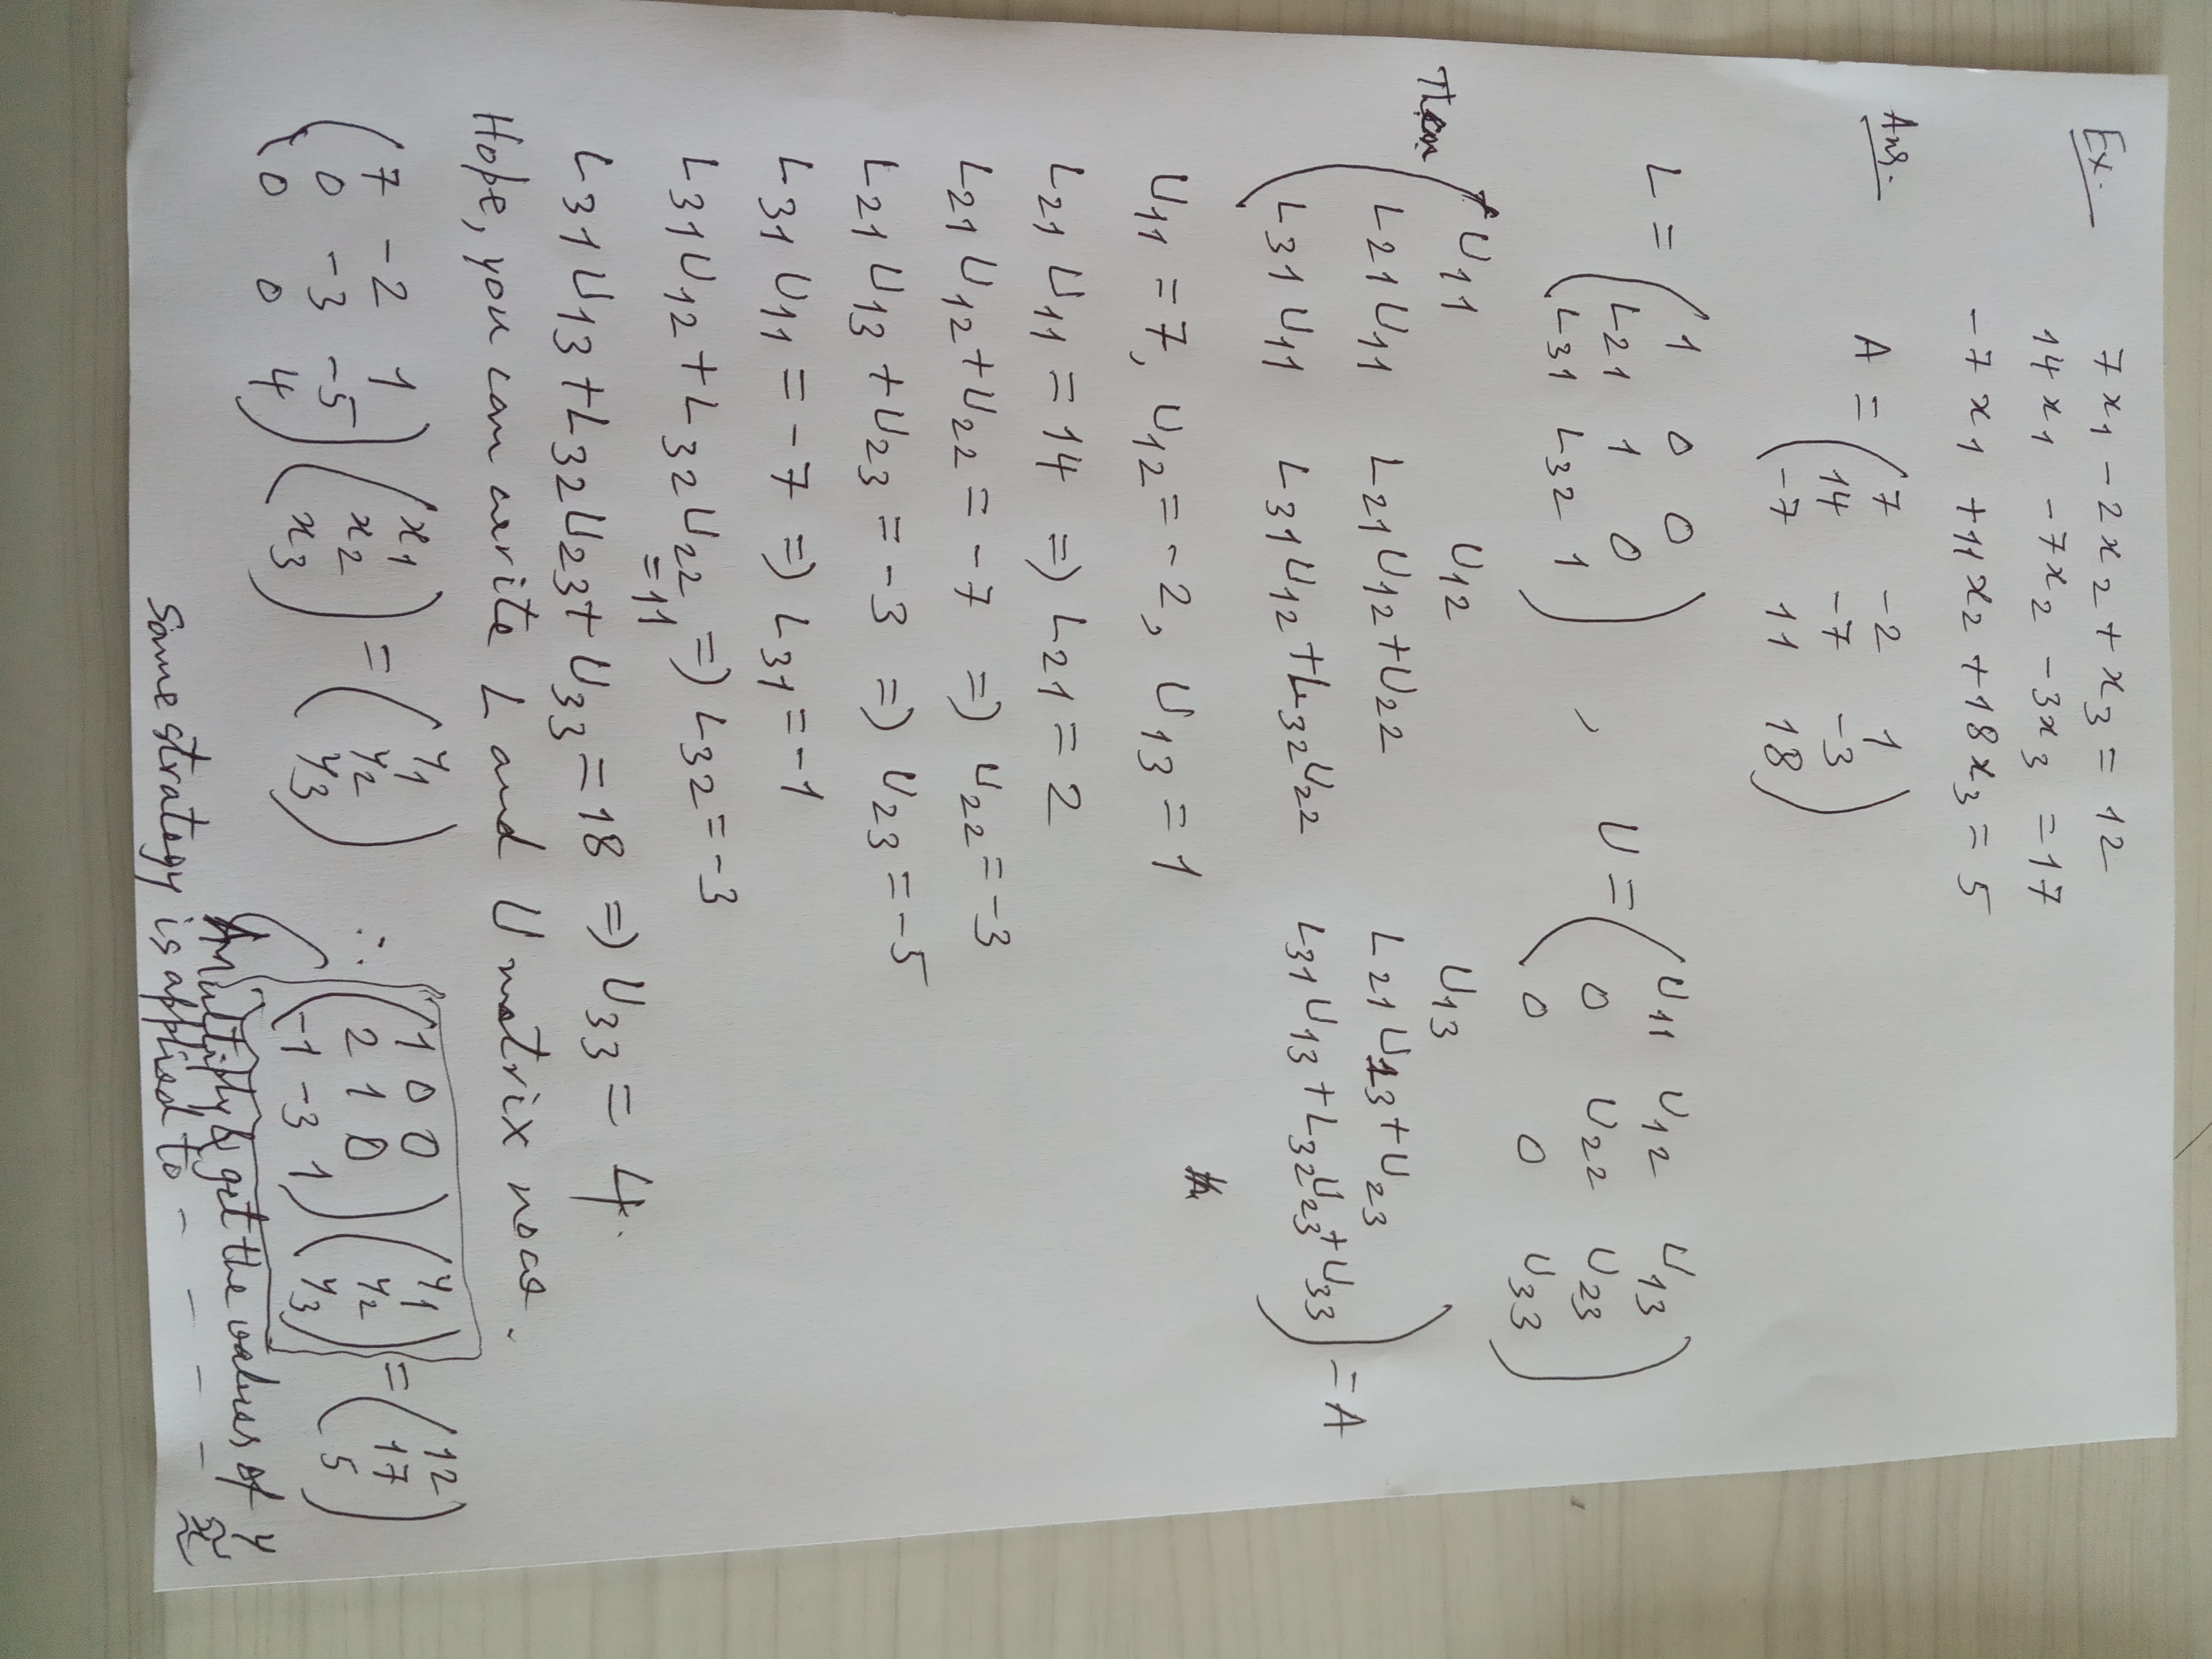 Ex. 7x1 - 2x2 + x3 = 12
14x1 - 7x2 - 3x3 = 17
-7x1 + 11x2 + 18x3 = 5
Ans. A = ( 7 -2 1
14 -7 -3
-7 11 18 )
L = ( 1 0 0
L21 1 0
L31 L32 1 ) , U = ( U11 U12 U13
0 U22 U23
0 0 U33 )
Then ( U11 U12 U13
L21U11 L21U12+U22 L21U13+U23
L31U11 L31U12+L32U22 L31U13+L32U23+U33 ) = A
U11 = 7, U12 = -2, U13 = 1
L21U11 = 14 => L21 = 2
L21U12+U22 = -7 => U22 = -3
L21U13+U23 = -3 => U23 = -5
L31U11 = -7 => L31 = -1
L31U12+L32U22 = 11 => L32 = -3
L31U13+L32U23+U33 = 18 => U33 = 4.
Hope, you can write L and U matrix now.
( 7 -2 1
0 -3 -5
0 0 4 ) ( x1
x2
x3 ) = ( y1
y2
y3 )
∴ ( 1 0 0
2 1 0
-1 -3 1 ) ( y1
y2
y3 ) = ( 12
17
5 )
Multiply & get the values of y
Same strategy is applied to - - - - x